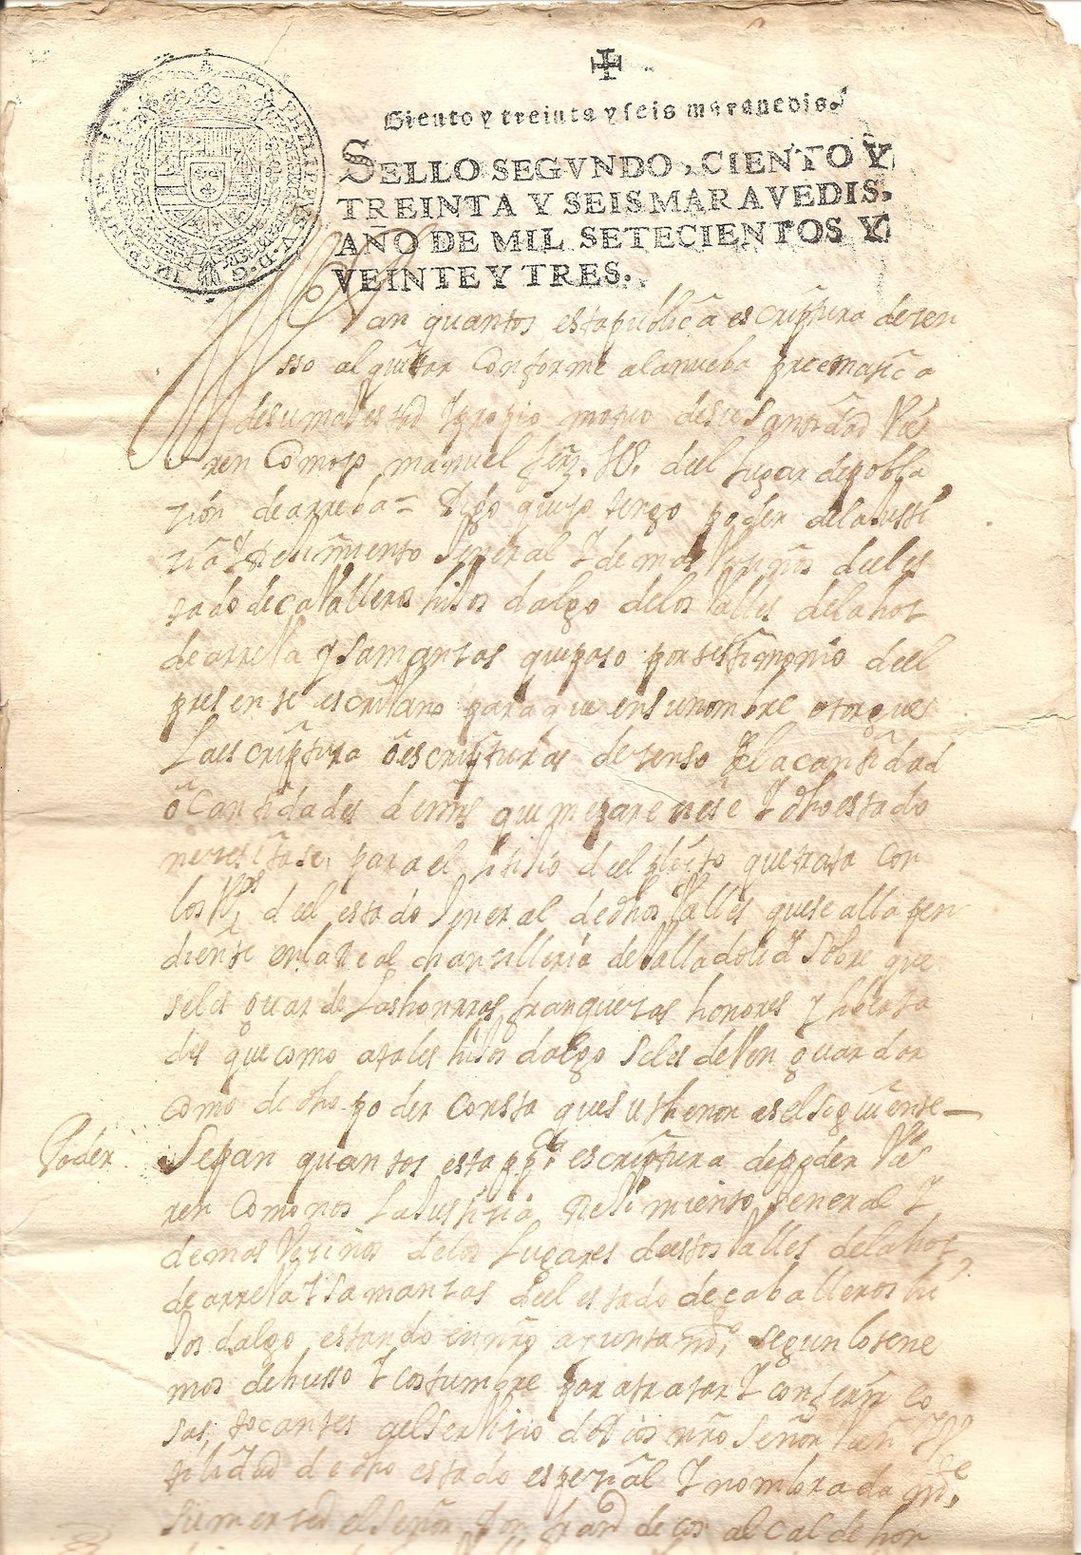 Ciento y treinta y seis marauedis.
SELLO SEGVNDO, CIENTO Y
TREINTA Y SEIS MARAVEDIS,
AÑO DE MIL SETECIENTOS Y
VEINTE Y TRES.
PHILIPPVS V D G
Sepan quantos esta publica escriptura de zen
sso al quitar Conforme a la nueba precmatica
de su magestad Y propio motuo de su santidad Vie
ren Como yo manuel frnz. del lugar de pobla
zion de arreba = Digo que yo tengo poder de la Justi
zia Reximiento General Y demas Vezinos del es
tado de cavalleros hijos dalgo de los Valles de la hoz
de arreba y samanzas que paso por testimonio del
presente escribano para que en su nombre otorgue
La escriptura o escripturas de zenso de la cantidad
o Cantidades de mrs que me pareziese Y dho estado
nezesitase para el litijio del pleito que trata con
los Vos del estado General de dhos Valles que se alla pen
diente en la Real chanzilleria de Valladolid sobre que
se les guarde Las honrras franquezas honores y liberta
des que como a tales hijos dalgo se les deben guardar
Como de dho poder Consta que su thenor es el siguiente
Poder
Sepan quantos esta ppca escriptura de poder Vie
ren Como nos La Justizia Reximiento General Y
demas Vezinos de los Lugares destos Valles de la hoz
de arreba Y samanzas del estado de caballeros hi
jos dalgo estando en nro ayuntamto segun lo tene
mos de husso Y costumbre para tratar Y conferir co
sas tocantes al serbizio de Dios nro Señor
tilidad de dho estado espezial Y nombradamte
su merzed el Señor Don alcalde hor